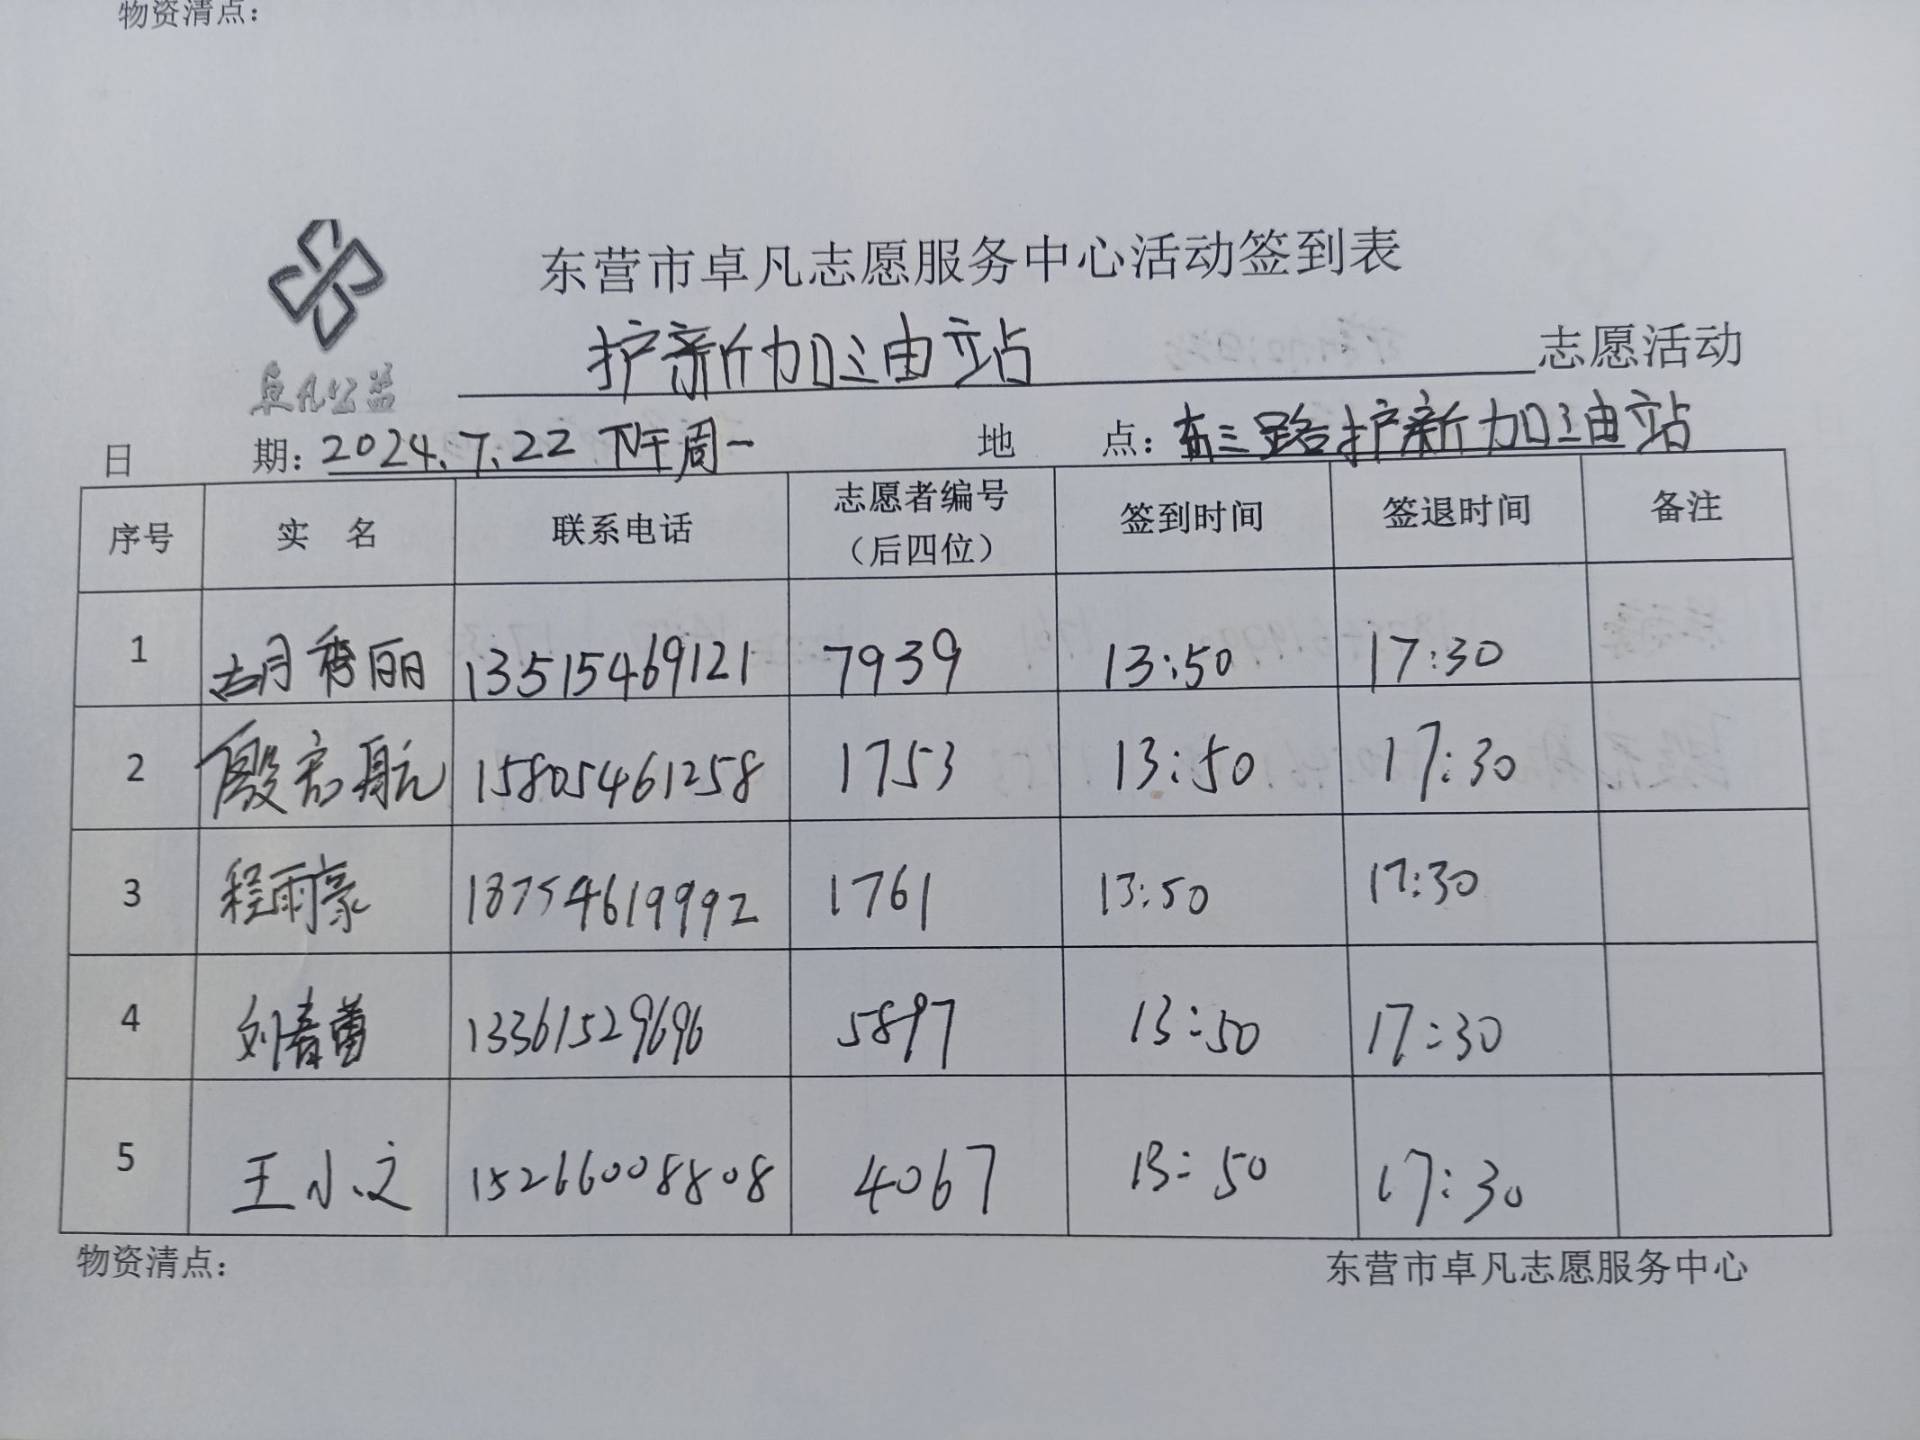 物资清点：
东营市卓凡志愿服务中心活动签到表
卓凡公益
护新加油站 志愿活动
日 期：2024.7.22 下午周一 地 点：东三路护新加油站
序号 实 名 联系电话 志愿者编号（后四位） 签到时间 签退时间 备注
1 胡秀丽 13515469121 7939 13:50 17:30
2 殷志航 15805461258 1753 13:50 17:30
3 程雨豪 18754619992 1761 13:50 17:30
4 刘春蕾 13361529696 5897 13:50 17:30
5 王小文 15266008808 4067 13:50 17:30
物资清点： 东营市卓凡志愿服务中心